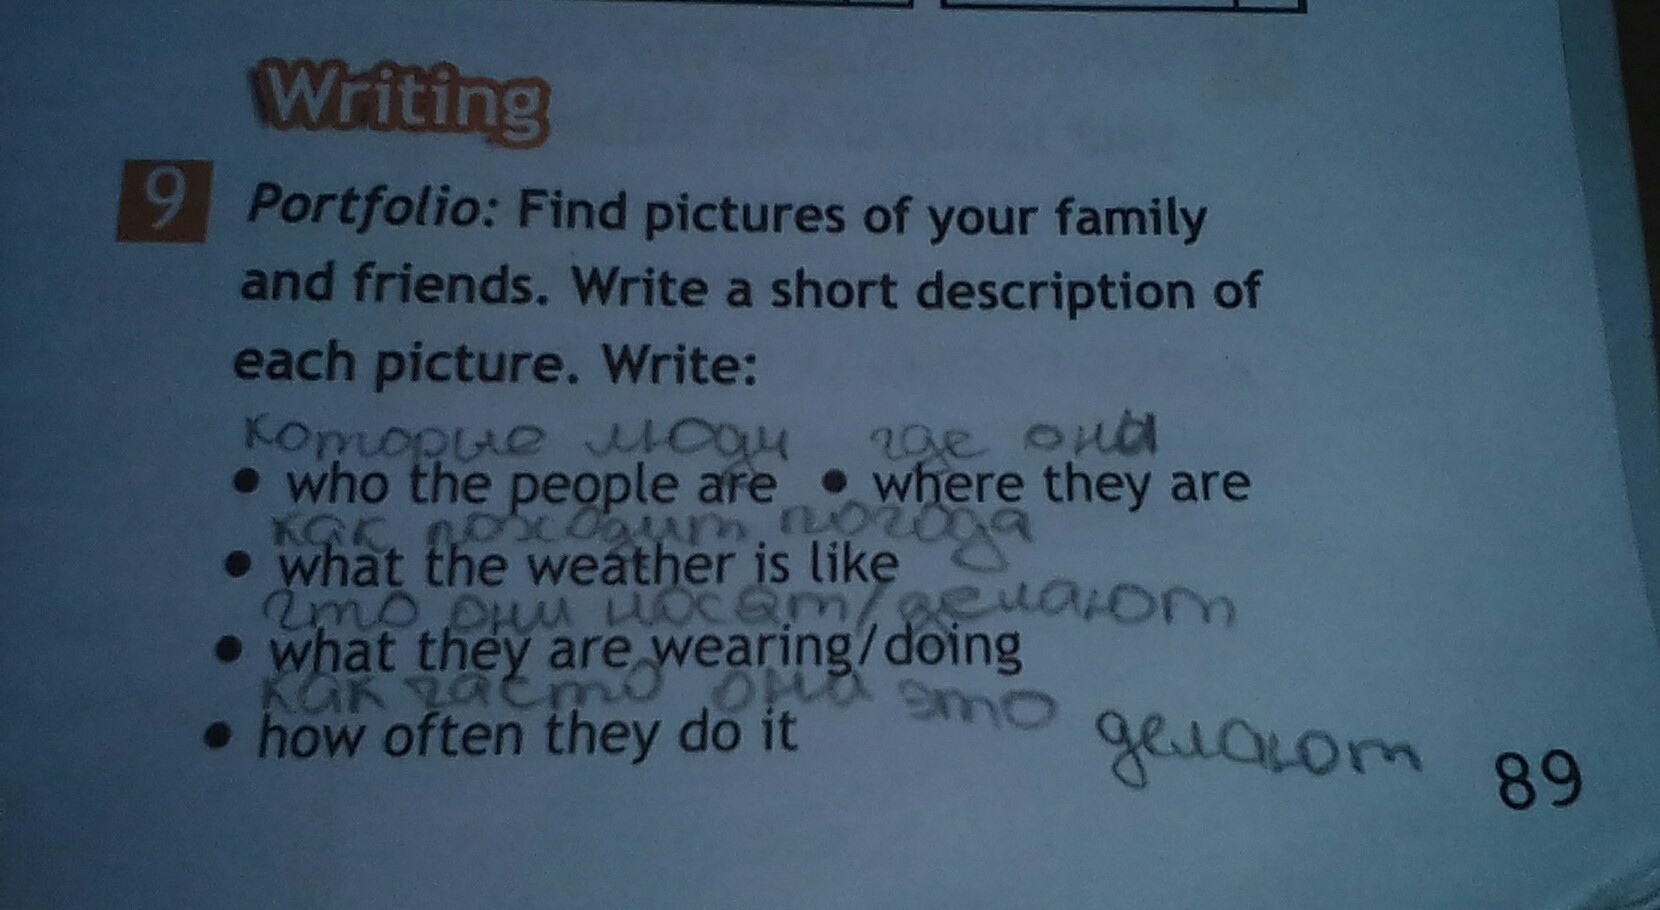 Writing
9 Portfolio: Find pictures of your family
and friends. Write a short description of
each picture. Write:
которые люди где она
• who the people are • where they are
как походит погода
• what the weather is like
что они носят/делают
• what they are wearing/doing
как часто она это делают
• how often they do it
89